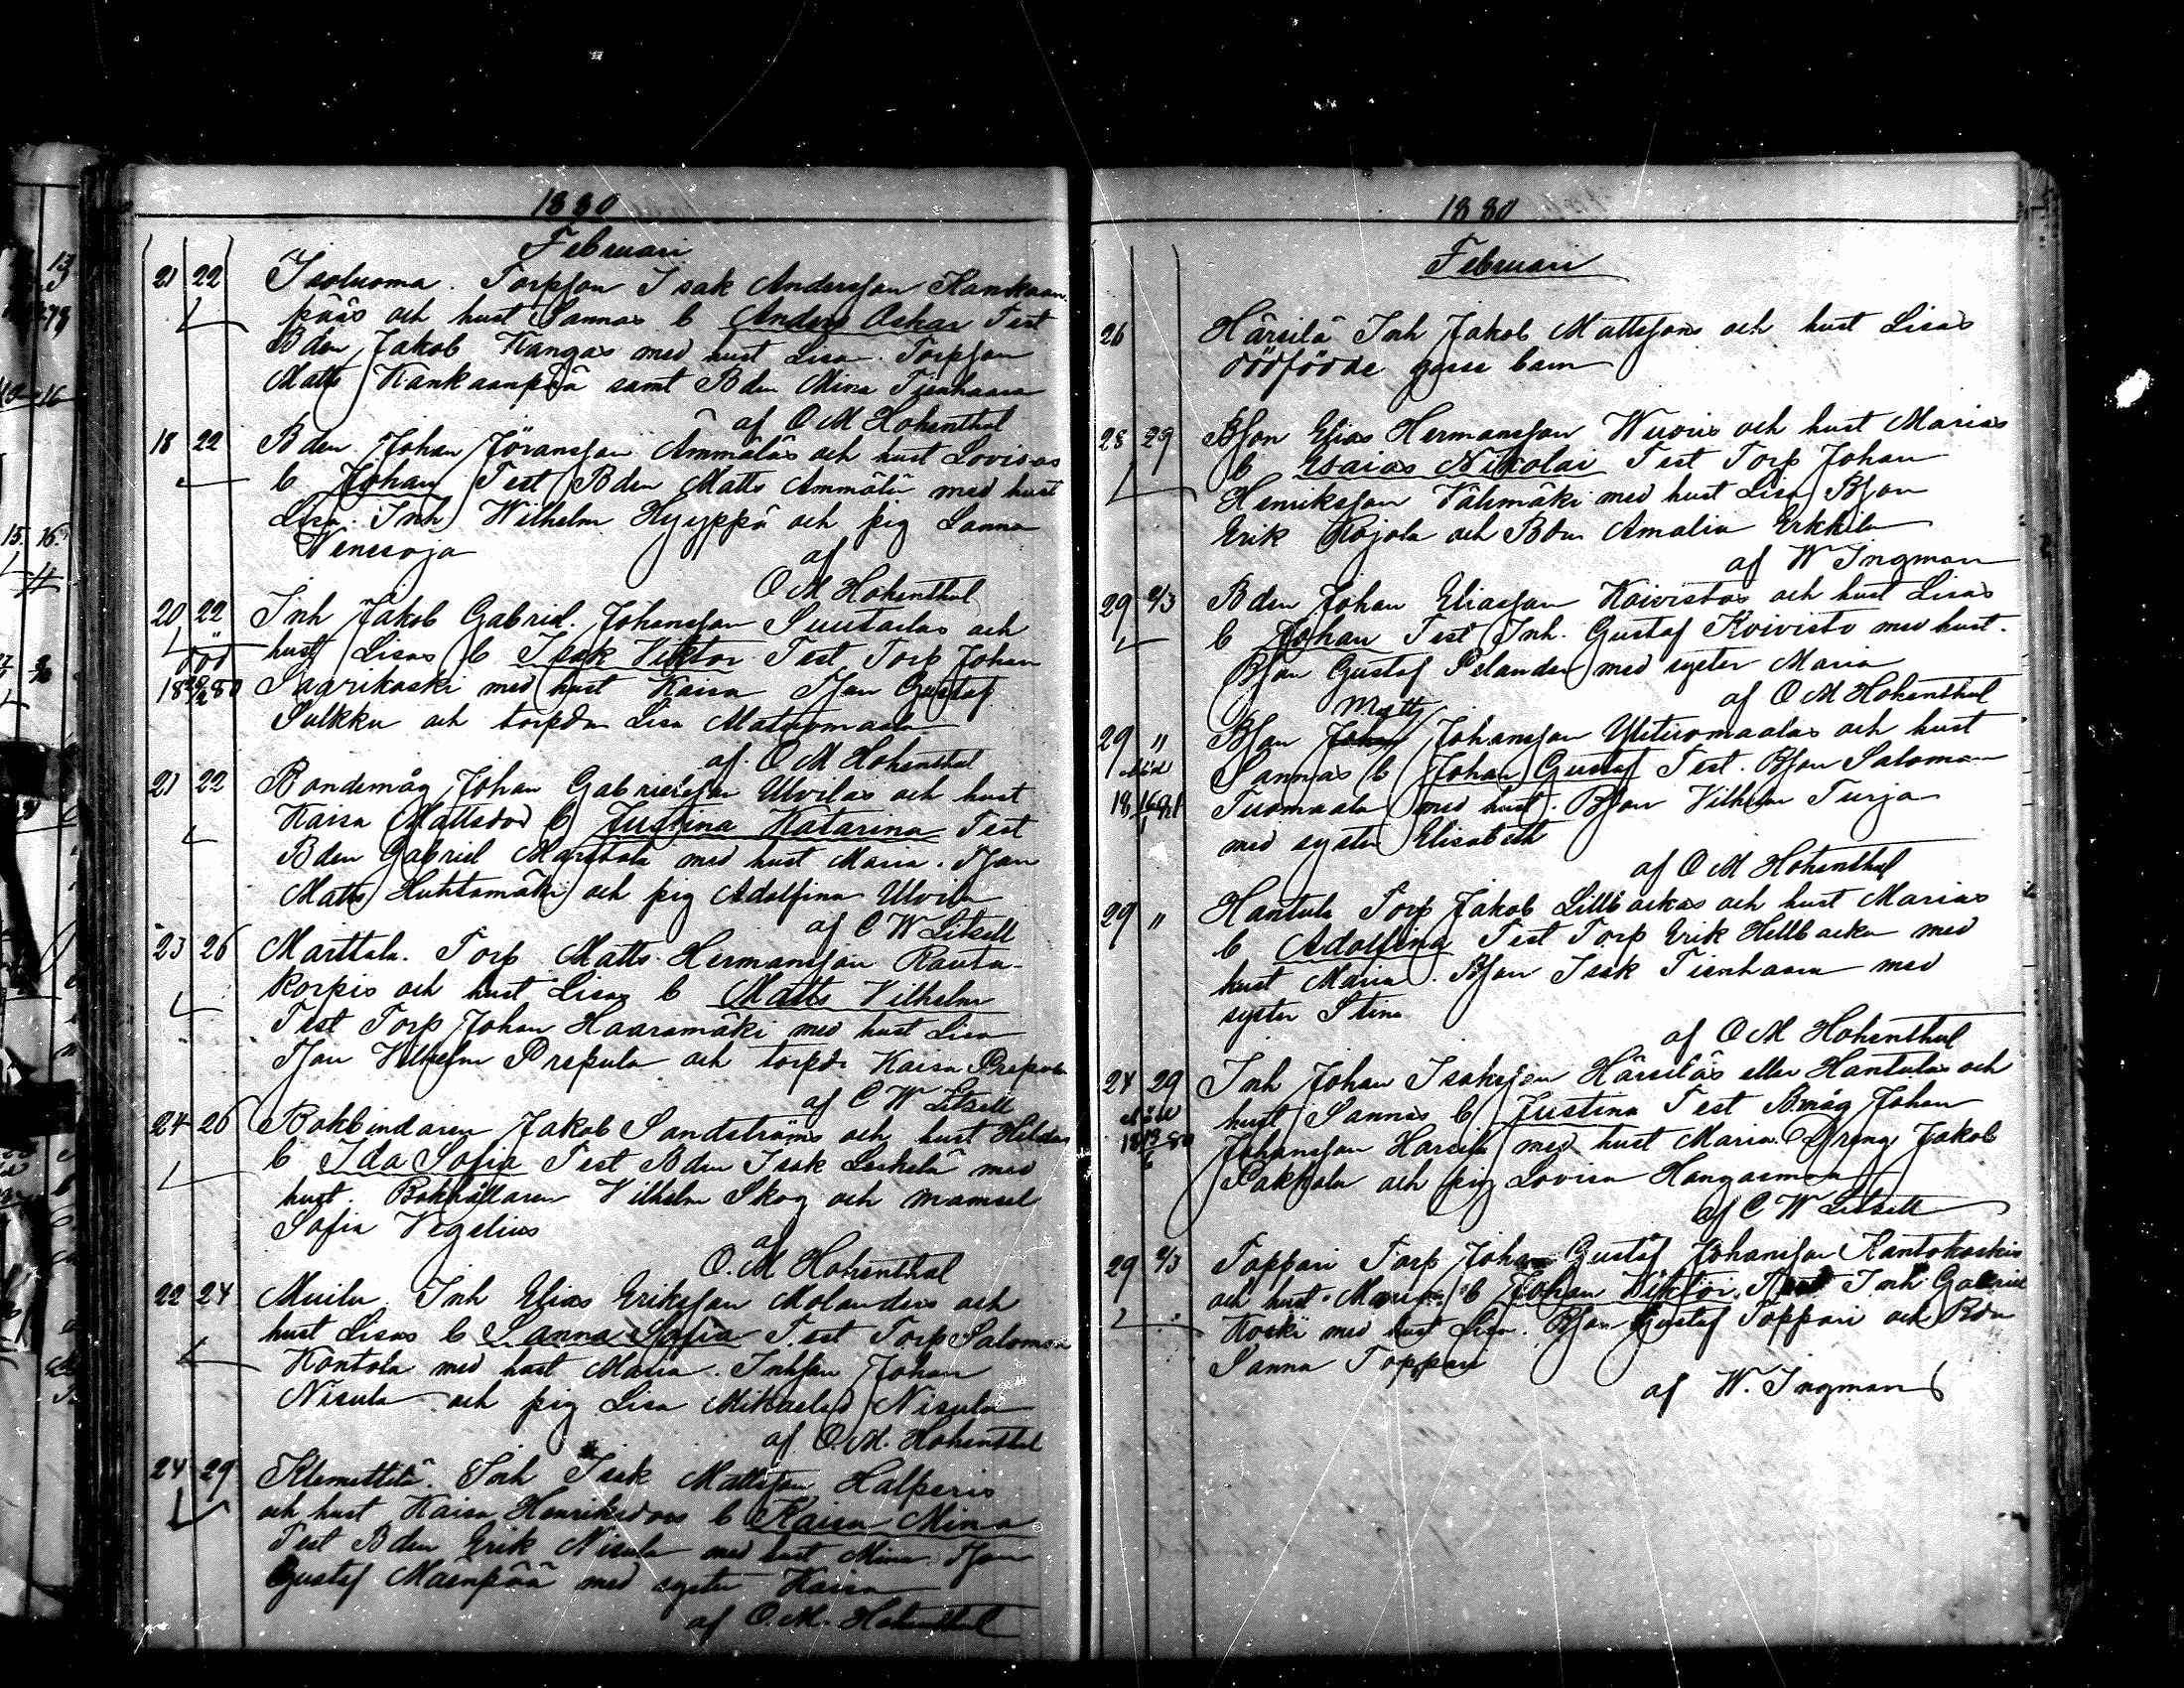 1880
Februari
21 22 Isoluoma. Torpson Isak Andersson Kankaan
pääs och hust Sannas b Anders Oskar Test
Bden Jakob Kangas med hust Lisa. Torpson
Matts Kankaanpää samt Bdn Mina Tienhaara
af O M Hohenthal
18 22 Bden Johan Jöransson Ämmäläs och hust Lovisas
b Johan Test Bden Matts Ämmälä med hust
Lisa. Inh Wilhelm Hyyppä och pig Sanna
Venesoja
af
O M Hohenthal
20 22 Inh Jakob Gabriel Johansson Suutarlas och
död hust Lisas b Isak Viktor Test Torp Johan
Saarikoski med hust Kaisa Json Gustaf
Sulkku och torpdn Lisa
af O M Hohenthal
21 22 Bondemåg Johan Gabrielsson Ulvilas och hust
Kaisa Mattsdos b Justina Katarina Test
Bden Gabriel Marttala med hust Maria. Json
Matts Huhtamäki och pig Adolfina Ulvila
af C W Litzell
23 26 Marttala. Torp Matts Hermansson Rauta-
korpis och hust Lisas b Matts Vilhelm
Test Torp Johan Haaramäki med hust Lisa
Json Vilhelm Prepula och torpd Kaisa Prepula
af C W Litzell
24 26 Bokbindaren Jakob Sandströms och hust Hildas
b Ida Sofia Test Bden Isak Leskelä med
hust. Bokhållaren Vilhelm Skog och mamsel
Sofia Vegelius
af
O. M Hohenthal
22 24 Muilu. Inh Elias Eriksson Molanders och
hust Lisas b Sanna Sofia Test Torp Salomon
Kontola med hust Maria. Inhson Johan
Nisula och pig Lisa Mikaelsd Nisula
af O. M. Hohenthal
24 29 Klemettilä. Inh Isak Mattsson Halperis
och hust Kaisa Henriksdors b Kaisa Mina
Test Bden Erik Nisula med hust Mina. Json
Gustaf Mäenpää med syster Kaisa
af O. M. Hohenthal
1880
Februari
26 Härsilä Inh Jakob Mattssons och hust Lisas
dödfödde gosse barn
28 29 Bson Elias Hermansson Wuoris och hust Marias
b Esaias Nikolai Test Torp Johan
Henriksson Vähämäki med hust Lisa Bson
Erik Rojola och Bdn Amalia Erkkila
af W Ingman
29 2/3 Bden Johan Eliasson Koivistos och hust Lisas
b Johan Test Inh. Gustaf Koivisto med hust.
Bson Gustaf Pelander med syster Maria
af O M Hohenthal
Matts
29 " Bson Johan Johansson Ylituomaalas och hust
Sannas b Johan Gustaf Test. Bson Salomon
Tuomaala med hust. Bson Vilhelm Turja
med syster Elisabeth
af O M Hohenthal
29 " Hantula Torp Jakob Lillbackas och hust Marias
b Adolfina Test Torp Erik Hillbacka med
hust Maria. Bson Isak Tienhaara med
syster Stina
af O M Hohenthal
24 29 Inh Johan Isaksson Härsiläs eller Hantulas och
hust Sannas b Justina Test Bmåg Johan
Johansson Harsila med hust Maria. Dreng Jakob
Pakkala och pig Lovisa Hangasmaa
af C W Litzell
29 2/3 Toppari Torp Johan Gustaf Johansson Rantakoskis
och hust Marias b Johan Viktor. Test Inh Gabriel
Koski med hust Lisa. Bson Gustaf Toppari och Bdn
Sanna Toppari
af W. Ingman